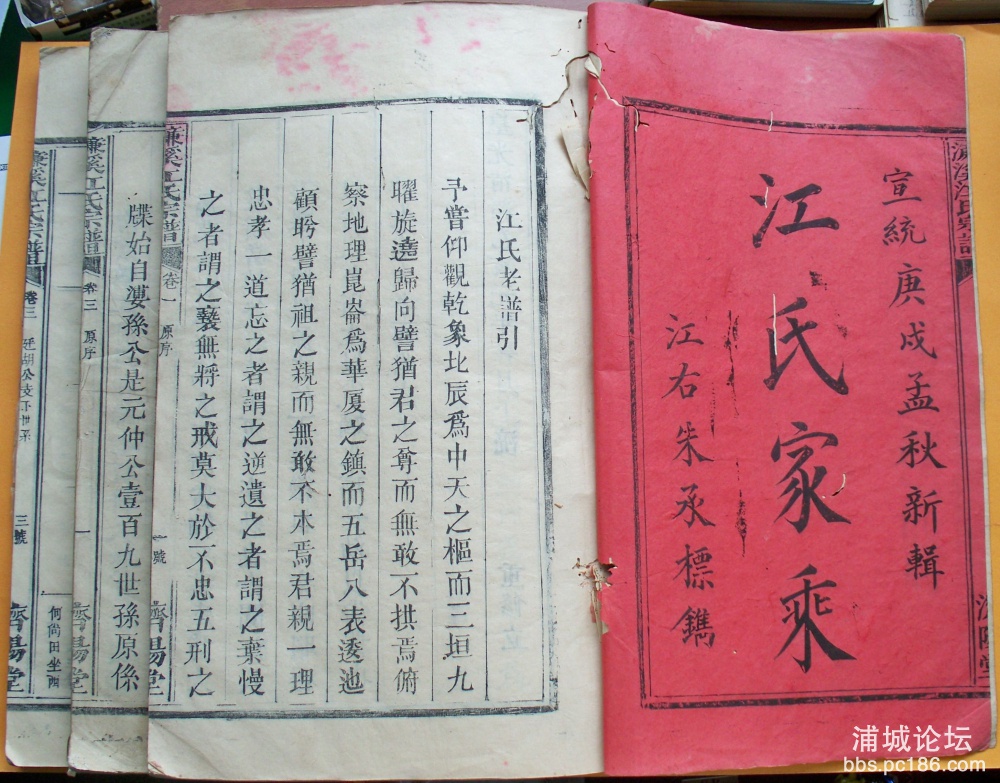 宣統庚戌孟秋新輯
江氏家乘
江右朱承標鐫
江氏老譜引
予嘗仰觀乾象北辰爲中天之樞而三垣九
曜旋遶歸向譬猶君之尊而無敢不拱焉俯
察地理崑崙爲華厦之鎮而五岳八表逶迤
顧盻譬猶祖之親而無敢不本焉君親一理
忠孝一道忘之者謂之逆遺之者謂之棄慢
之者謂之褻無將之戒莫大於不忠五刑之
濂溪江氏宗譜
卷一
原序
一號
濟陽堂
牒始自漊孫公是元仲公壹百九世孫原係
濂溪江氏宗譜
卷三
原序
一
濂溪江氏宗譜
卷三
三號
濟陽堂
浦城论坛
bbs.pc186.com